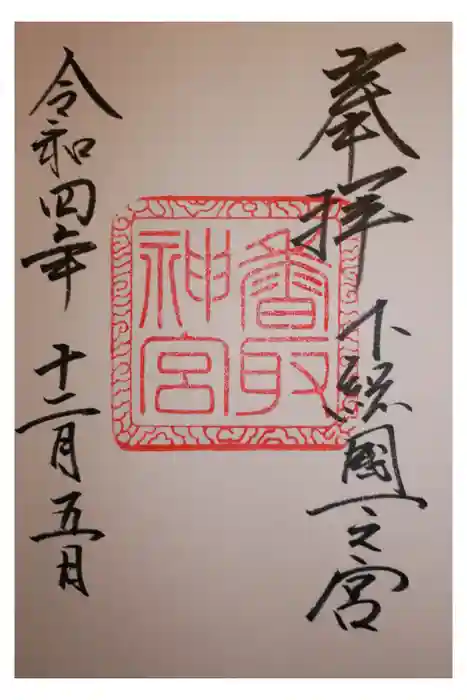 奉拝
下総國一之宮
香取
神宮
令和四年 十二月五日